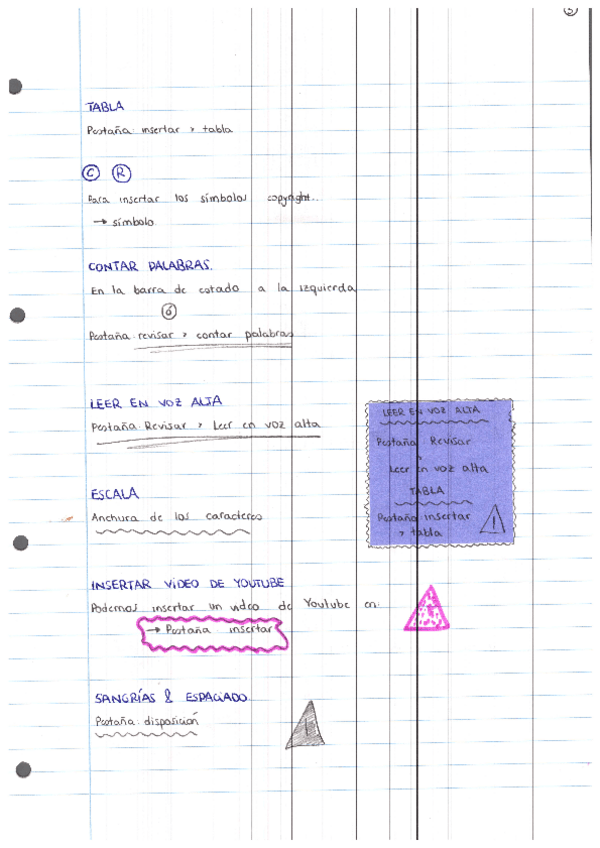 TABLA
Pestaña insertar > tabla
© ®
Para insertar los símbolos copyright...
→ símbolo
CONTAR PALABRAS.
En la barra de estado a la izquierda
ó
Pestaña revisar > contar palabras
LEER EN VOZ ALTA
Pestaña Revisar > Leer en voz alta
LEER EN VOZ ALTA
Pestaña Revisar
>
Leer en voz alta
TABLA
Pestaña insertar
> tabla
!
ESCALA
Anchura de los caracteres
INSERTAR VÍDEO DE YOUTUBE
Podemos insertar un video de Youtube en:
→ Pestaña insertar
!
SANGRÍAS & ESPACIADO
Pestaña: disposición
!